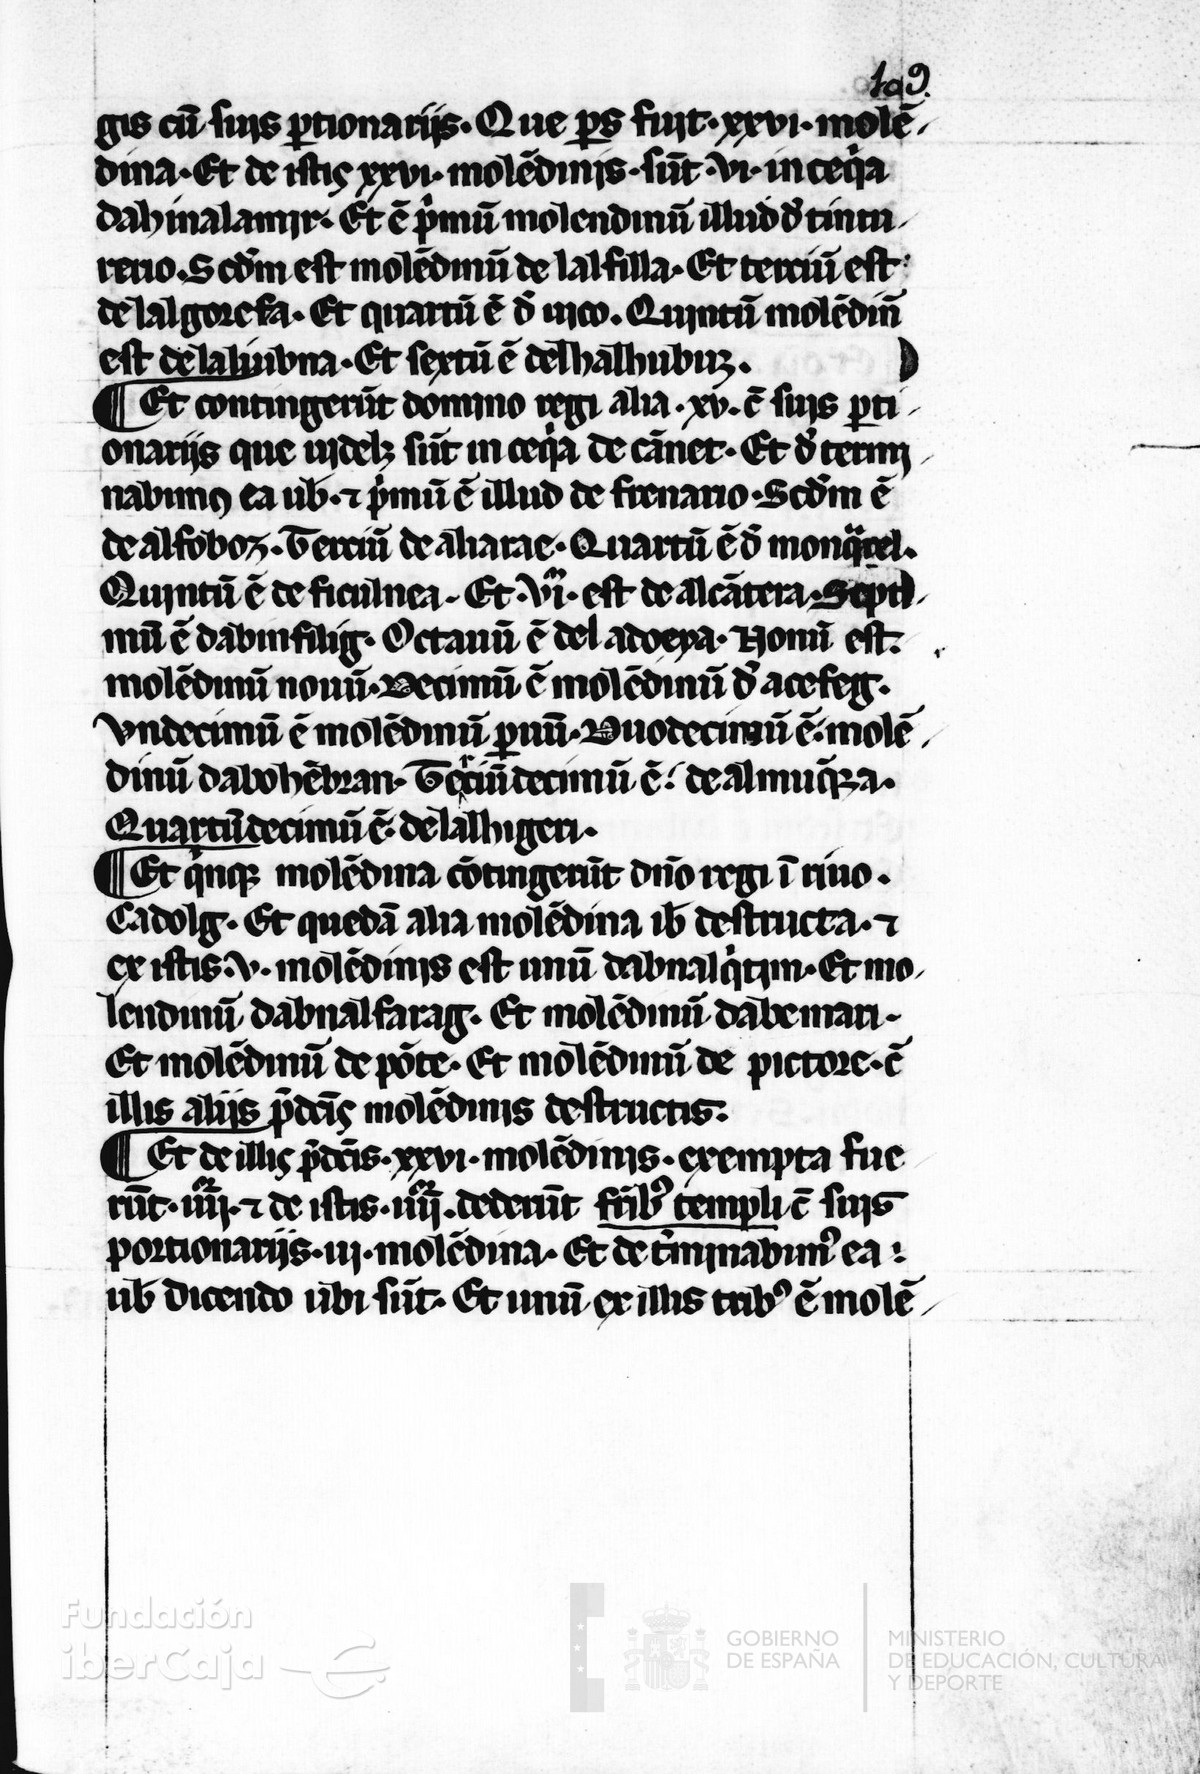 109.
gis cū suis ꝑtionarijs· Que ꝑs fuit· xxvi· molē
dina· Et de istis xxvi· molēdinis· sūt ·vi· in ceq̓a
dahinalamir· Et ē p̓mū molendinū illud d̓ tintu
rerio. Scd̓m est molēdinū de lalfilla· Et terciū est
de lalgorefa· Et quartū ē d̓ uico. Quintū molēdin̄
est de laliubna· Et sextū ē delhalhubuz.
¶ Et contingerūt domino regi alia · xv· c̄ suis ꝑti
onarijs que uidelꝫ sūt in ceq̓a de cānet· Et d̓ termi
nabimꝰ ea ub̄·⁊ p̓mū ē illud de frenario· Scd̓m ē
de alfoboz· Terciū de aliarae· Quartū ē d̓ monq̄tel.
Quintū ē de ficulnea· Et ·vi· est de alcātera· Septi
mū ē dabinfilig· Octauū ē del adoeya· Nonū est·
molēdinū nouū· Decimū ē molēdinū d̓ acefeg.
Vndecimū ē molēdinū ꝑuū· Duodecimū ē· molē
dinū dabohēbran· Terciūdecimū ē· de almuq̄za·
Quartūdecimū ē· de lalhigeri·
¶ Et q̓nqꝫ molēdina cōtingerūt dn̄o regi ī riuo·
Cadolg· Et quedā alia molēdina ib̄ destructa·⁊
ex istis ·v· molēdinis est unū dabnalq̓tim· Et mo
lendinū dabnalfarag· Et molēdinū dabemari·
Et molēdinū de pōte· Et molēdinū de pictore· c̄
illis alijs p̄dc̄is molēdinis destructis·
¶ Et de illis p̄dc̄is ·xxvi· molēdinis· exempta fue
rūt· iiii· ⁊ de istis· iiii· dederūt fr̄ibꝰ templi c̄ suis
portionarijs· iii· molēdina· Et de t̓minabimꝰ ea
ub̄ dicendo ubi sūt· Et unū ex illis tribꝰ ē molē
Fundación
iberCaja
GOBIERNO
DE ESPAÑA
MINISTERIO
DE EDUCACIÓN, CULTURA
Y DEPORTE